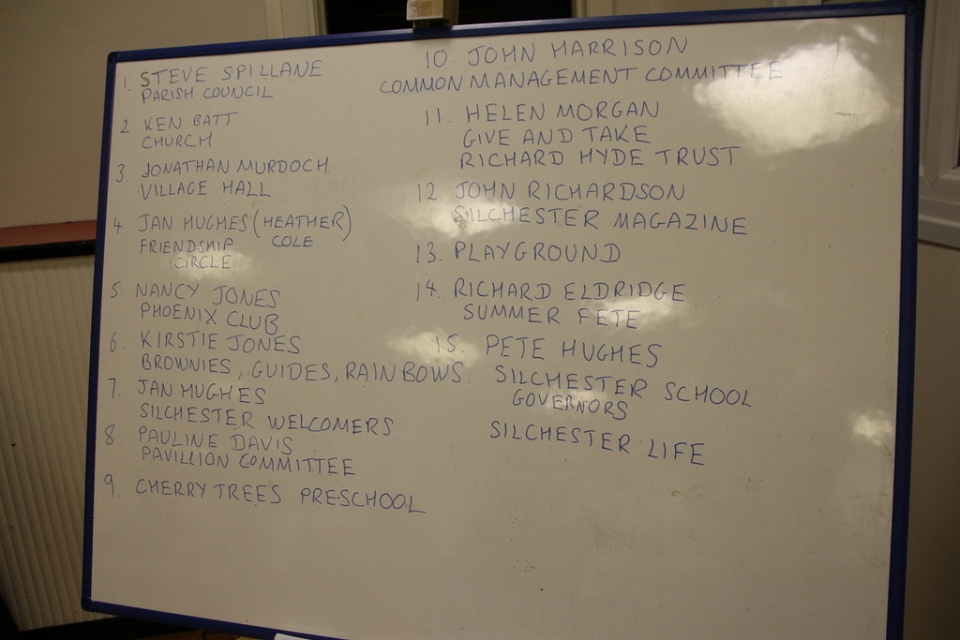 1. STEVE SPILLANE
PARISH COUNCIL
2 KEN BATT
CHURCH
3. JONATHAN MURDOCH
VILLAGE HALL
4. JAN HUGHES (HEATHER
COLE)
FRIENDSHIP
CIRCLE
5. NANCY JONES
PHOENIX CLUB
6. KIRSTIE JONES
BROWNIES, GUIDES, RAINBOWS.
7. JAN HUGHES
SILCHESTER WELCOMERS
8. PAULINE DAVIS
PAVILLION COMMITTEE
9. CHERRY TREES PRE-SCHOOL
10. JOHN HARRISON
COMMON MANAGEMENT COMMITTEE
11. HELEN MORGAN
GIVE AND TAKE
RICHARD HYDE TRUST
12. JOHN RICHARDSON
SILCHESTER MAGAZINE
13. PLAYGROUND
14. RICHARD ELDRIDGE
SUMMER FETE
15. PETE HUGHES
SILCHESTER SCHOOL
GOVERNORS
SILCHESTER LIFE